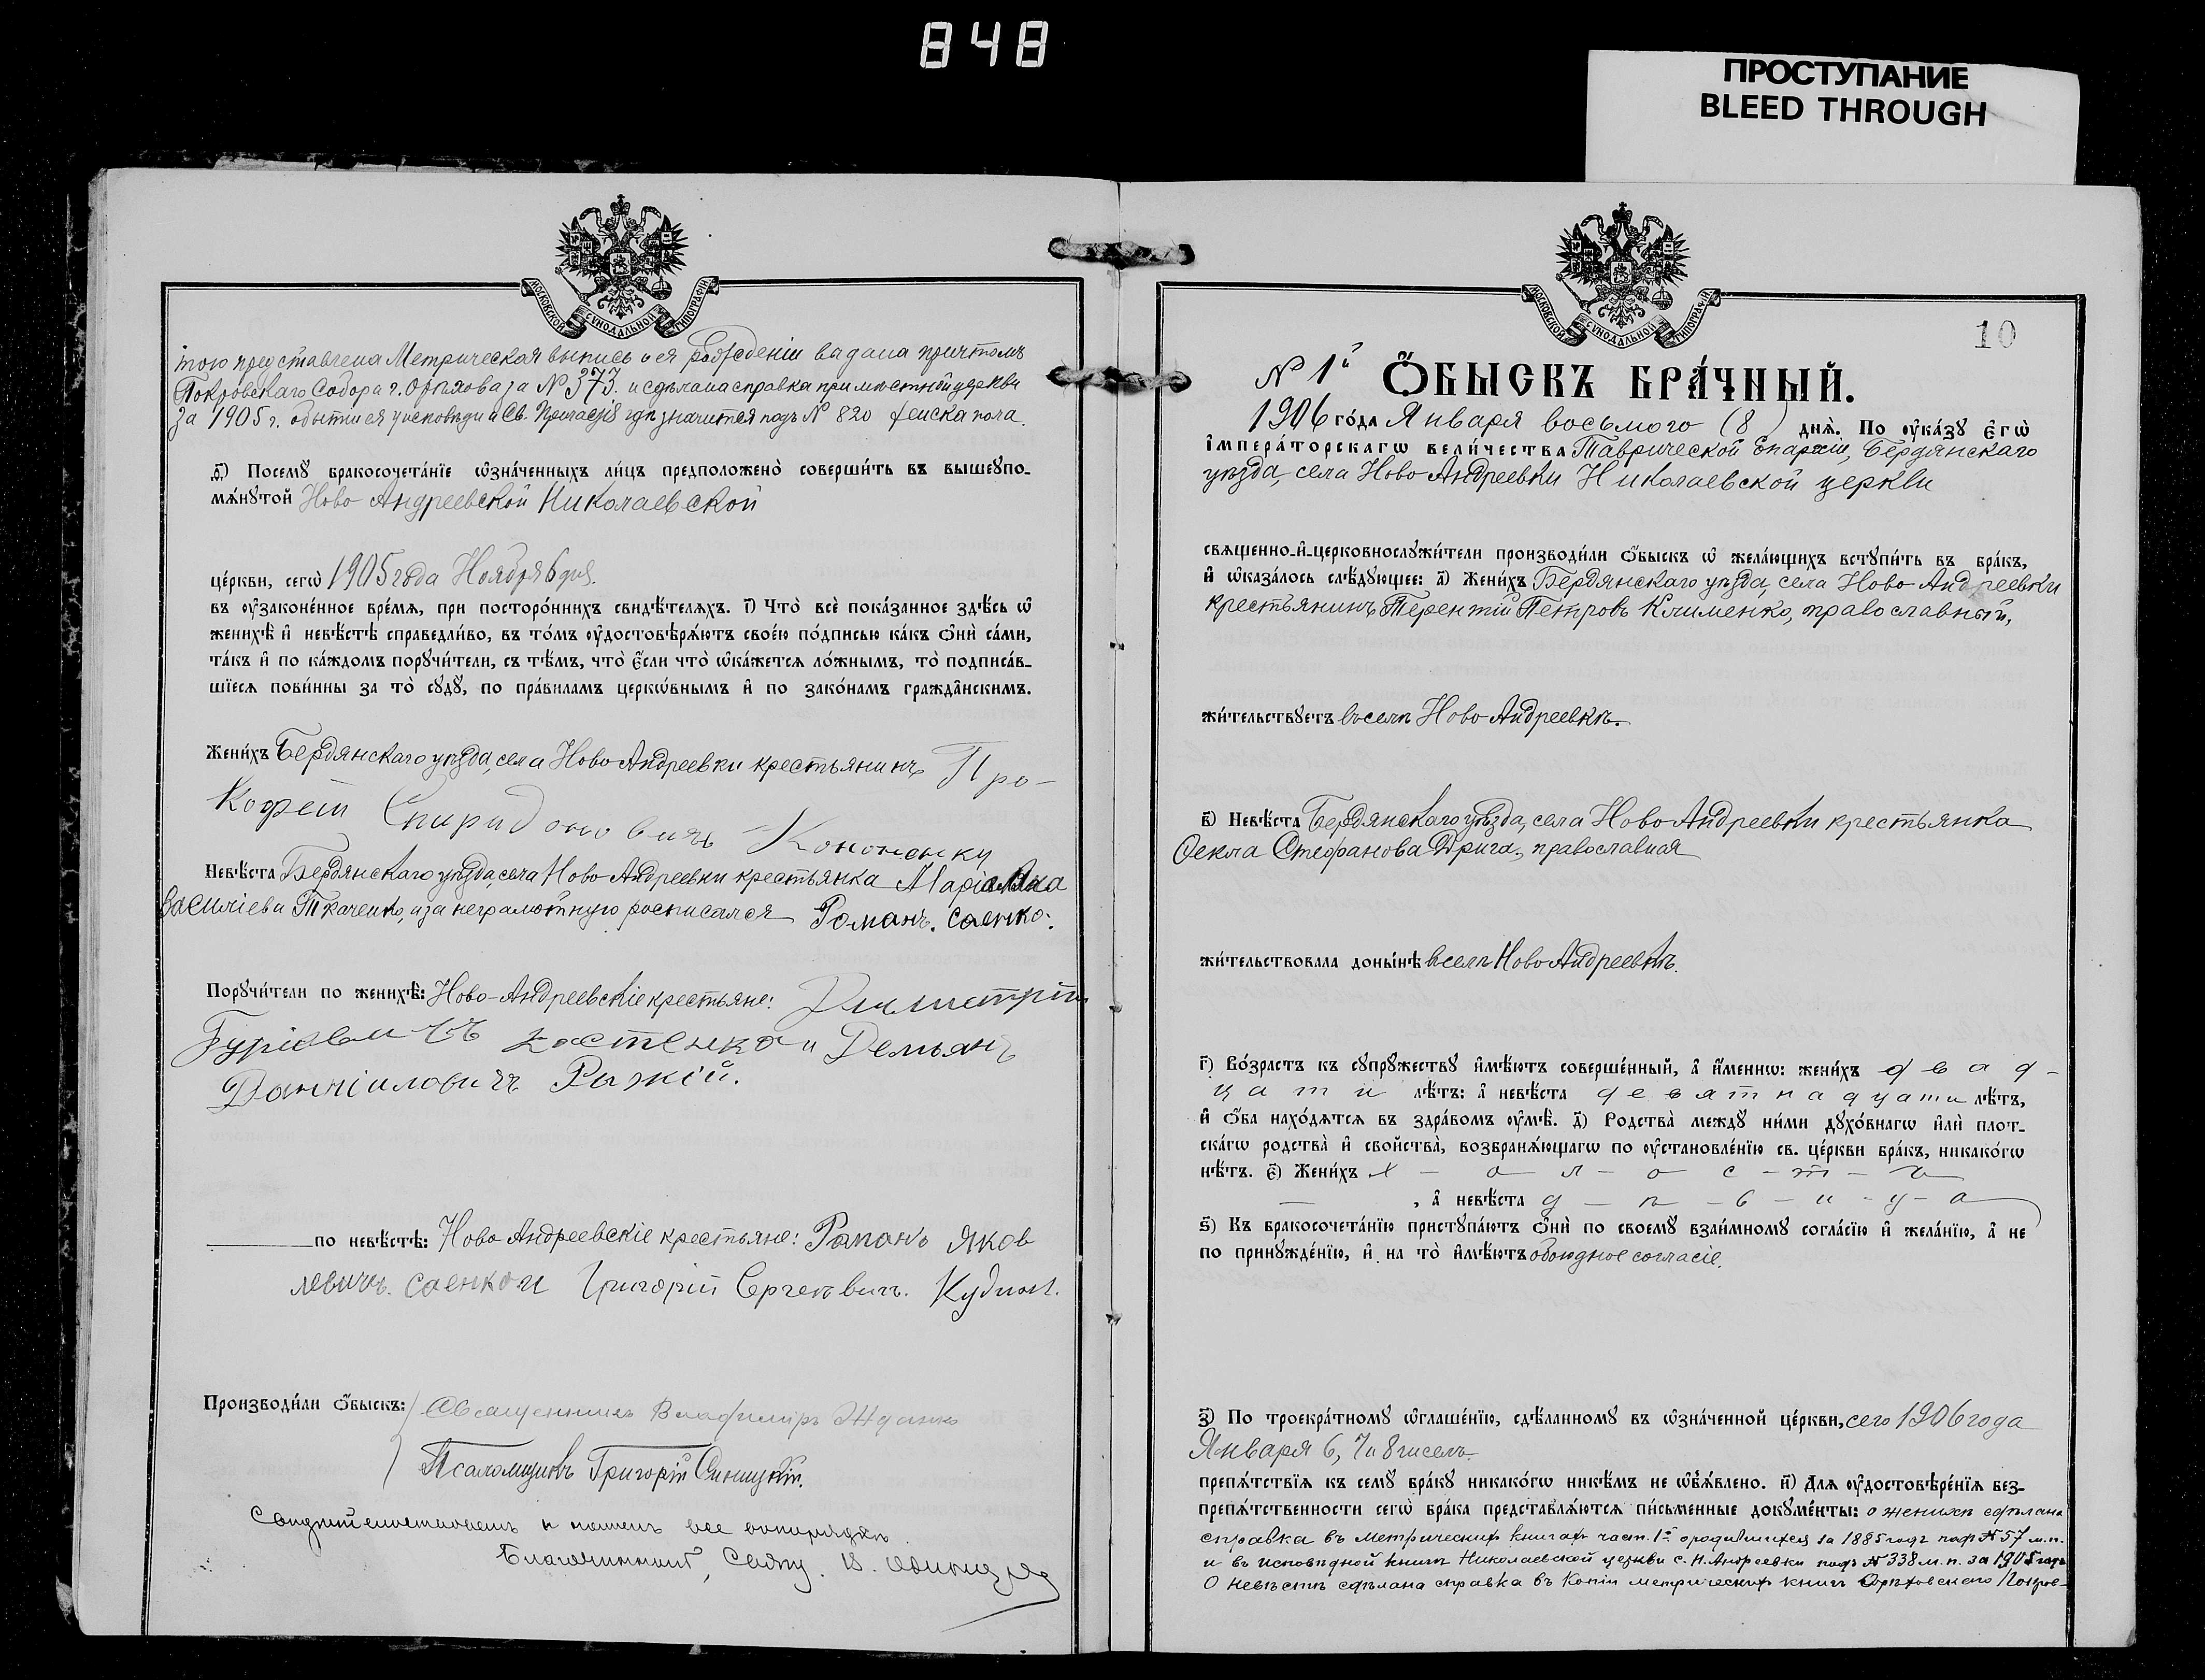 848
ПРОСТУПАНИЕ
BLEED THROUGH
МОСКОВСКОЙ СѴНОДАЛЬНОЙ ТИПОГРАФІИ
тою представлена Метрическая выпись о ея рожденіи выдана причтомъ
Покровскаго Собора г. Орѣхова за № 373. и сдѣлана справка при мѣстной церкви
за 1905 г. о бытіи ея у исповѣди и Св. Причастія гдѣ значится подъ № 820 женска пола.
ѳ҃) Посемꙋ бракосочета́нїе ѡ҆зна́ченныхъ ли́цъ предположено̀ соверши́ть въ вышеꙋпо-
мѧ́нꙋтой Ново Андреевской Николаевской
це́ркви, сегѡ̀ 1905 года Ноября 6 дня.
въ ᲂу҆законе́нное вре́мѧ, при посторо́ннихъ свидѣ́телѧхъ. і҃) Что̀ всѐ пока́занное здѣ́сь ѡ҆
женихѣ̀ и҆ невѣ́стѣ справедли́во, въ то́мъ ᲂу҆достовѣрѧ́ютъ свое́ю по́дписью ка́къ ѻ҆нѝ са́ми,
та́къ и҆ по ка́ждомъ порꙋчи́тели, съ тѣ́мъ, что̀ є҆́сли что̀ ѡ҆ка́жетсѧ ло́жнымъ, то̀ подписа́в-
шїесѧ пови́нны за то̀ сꙋдꙋ̀, по пра́виламъ церкѡ́внымъ и҆ по зако́намъ гражда́нскимъ.
Жени́хъ Бердянскаго уѣзда, села Ново Андреевки крестьянинъ Про-
кофій Спиридоновичъ Кононенку
Невѣ́ста Бердянскаго уѣзда, села Ново Андреевки крестьянка
Василіева Ткаченко, а за неграмотную росписался Романъ. Саенко.
Порꙋчи́тели по женихѣ̀: Ново-Андреевскіе крестьяне: Димитрій
Гуріевичъ Костенко и Демьянъ
Данніиловичъ Рижкій.
по невѣ́стѣ: Ново Андреевскіе крестьяне: Романъ Яков
левичъ. Саенко и Григорій Сергѣевичъ.
Производи́ли ѻ҆́быскъ: Священникъ Владиміръ Жданко
Псаломщикъ Григорій Синицкій.
10
МОСКОВСКОЙ СѴНОДАЛЬНОЙ ТИПОГРАФІИ
№ 1й ѺБЫСКЪ БРА́ЧНЫЙ.
1906 го́да Января восьмого (8) днѧ̀. По ᲂу҆ка́зꙋ є҆гѡ̀
і҆мпера́торскагѡ вели́чества Таврической Епархіи, Бердянскаго
уѣзда, села Ново Андреевки Николаевской церкви
свѧщенно-и҆-церковнослꙋжи́тели производи́ли ѻ҆́быскъ ѡ҆ жела́ющихъ встꙋпи́ть въ бра́къ,
и҆ ѡ҆каза́лось слѣ́дꙋющее: а҃) Жени́хъ Бердянскаго уѣзда, села Ново Андреевки
крестьянинъ Терентій Петровъ Клименко, православный,
жи́тельствꙋетъ въ селѣ Ново Андреевкѣ.
в҃) Невѣ́ста Бердянскаго уѣзда, села Ново Андреевки крестьянка
Ѳекла Стефанова Дрига, православная
жи́тельствовала доны́нѣ в селѣ Ново Андреевкѣ.
г҃) Во́зрастъ къ сꙋпрꙋ́жествꙋ и҆мѣ́ютъ соверше́нный, а҆ и҆́меннѡ: жени́хъ двад-
цати лѣ́тъ: а҆ невѣ́ста девятнадцати лѣ́тъ,
и҆ ѻ҆́ба нахо́дѧтсѧ въ здра́вомъ ᲂу҆мѣ̀. д҃) Родства̀ междꙋ̀ ни́ми дꙋхо́внагѡ и҆лѝ плот-
ска́гѡ родства̀ и҆ свойства̀, возбранѧ́ющагѡ по ᲂу҆становле́нїю св. це́ркви бра́къ, никако́гѡ
нѣ́тъ. є҃) Жени́хъ х - о - л - о - с - т - ъ
, а҆ невѣ́ста д - ѣ - в - и - ц - а
ѕ҃) Къ бракосочета́нїю пристꙋпа́ютъ ѻ҆нѝ по своемꙋ̀ взаи́мномꙋ согла́сїю и҆ жела́нїю, а҆ не
по принꙋжде́нїю, и҆ на то̀ и҆мѣ́ютъ обоюдное согласіе.
з҃) По троекра́тномꙋ ѡ҆глаше́нїю, сдѣ́ланномꙋ въ ѡ҆зна́ченной це́ркви, сего 1906 года
Января 6, 7 и 8 чиселъ
препѧ́тствїѧ къ семꙋ̀ бра́кꙋ никако́гѡ никѣ́мъ не ѡ҆б̾ѧ́влено. и҃) Длѧ ᲂу҆достовѣре́нїѧ без-
препѧ́тственности сегѡ̀ бра́ка представлѧ́ютсѧ пи́сьменные докꙋме́нты: о женихѣ сдѣлана
справка въ метрическихъ книгахъ част. 1й о родившихся за 1885 годъ подъ № 57 м.п.
и въ исповѣдной книгѣ Николаевской церкви с. Н. Андреевки подъ № 338 м. п. за 1905 годъ
О невѣстѣ сдѣлана справка въ копіи метрическихъ книгъ Орѣховскаго Покров-